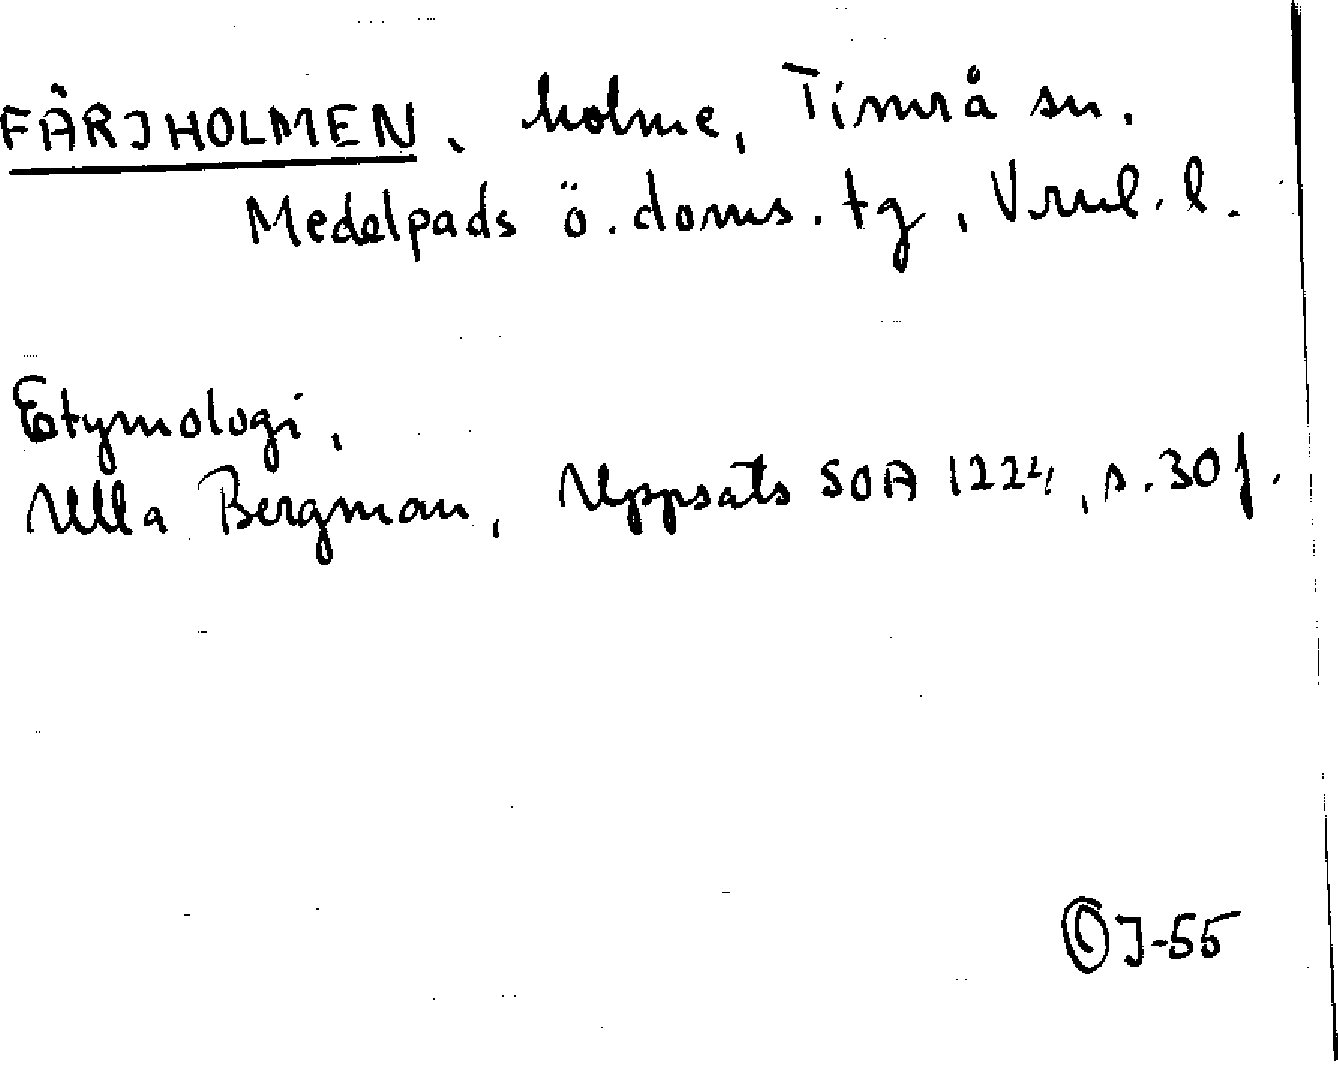 FÄRJHOLMEN, holme, Timrå sn.
Medelpads ö. doms. tg, Vrnl. l.
Etymologi,
Ulla Bergman, Uppsats SOA 1224, s. 30 f.
J-55